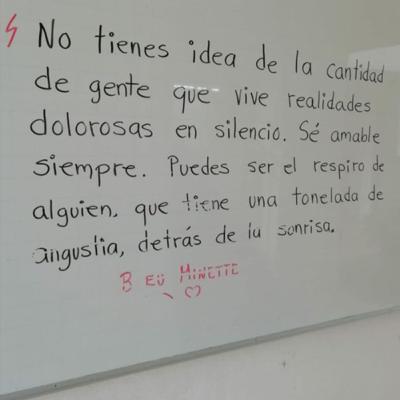 No tienes idea de la cantidad
de gente que vive realidades
dolorosas en silencio. Sé amable
siempre. Puedes ser el respiro de
alguien, que tiene una tonelada de
angustia, detrás de la sonrisa.
MINETTE